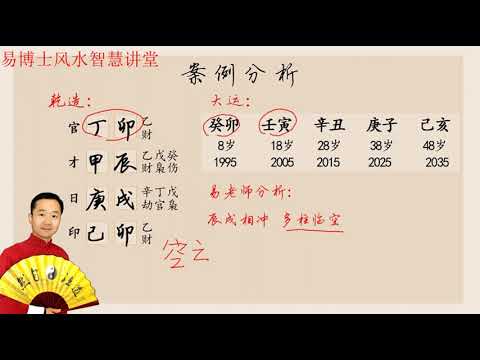 易博士风水智慧讲堂
案例分析
乾造：
官 丁 卯 乙财
才 甲 辰 乙戊癸 财枭伤
日 庚 戌 辛丁戊 劫官枭
印 己 卯 乙财
大运：
癸卯 壬寅 辛丑 庚子 己亥
8岁 18岁 28岁 38岁 48岁
1995 2005 2015 2025 2035
易老师分析：
辰戌相冲 多柱临空
空亡